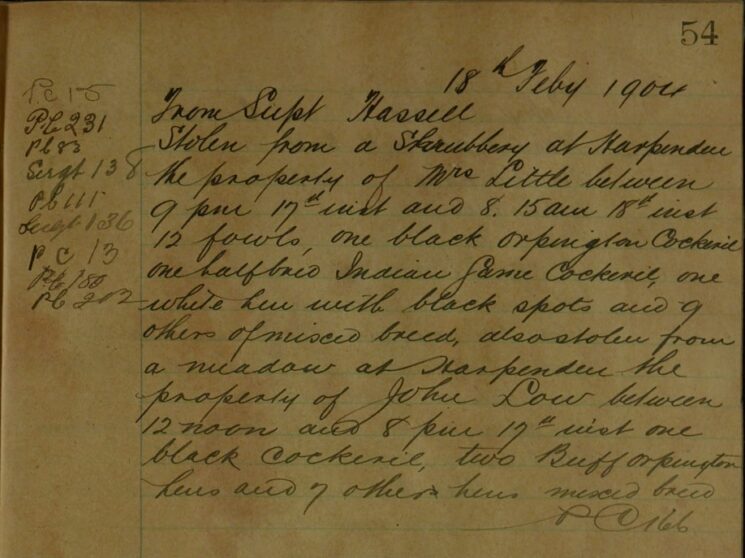 54
18th Feby 1904
From Supt Hassell
Stolen from a Shrubbery at Harpenden
the property of Mrs Little between
9 pm 17th inst and 8.15am 18th inst
12 fowls, one black orpington Cockeril
one halfbred Indian Game Cockeril, one
white hen with black spots and 9
others of mixed breed, also stolen from
a meadow at Harpenden the
property of John Low between
12 noon and 8 pm 17th inst one
black Cockeril, two Buff orpington
hens and 7 others hens mixed breed
PC 166
PC 15
PC 231
PC 83
Sergt 138
PC 111
Sergt 136
PC 13
PC 180
PC 202